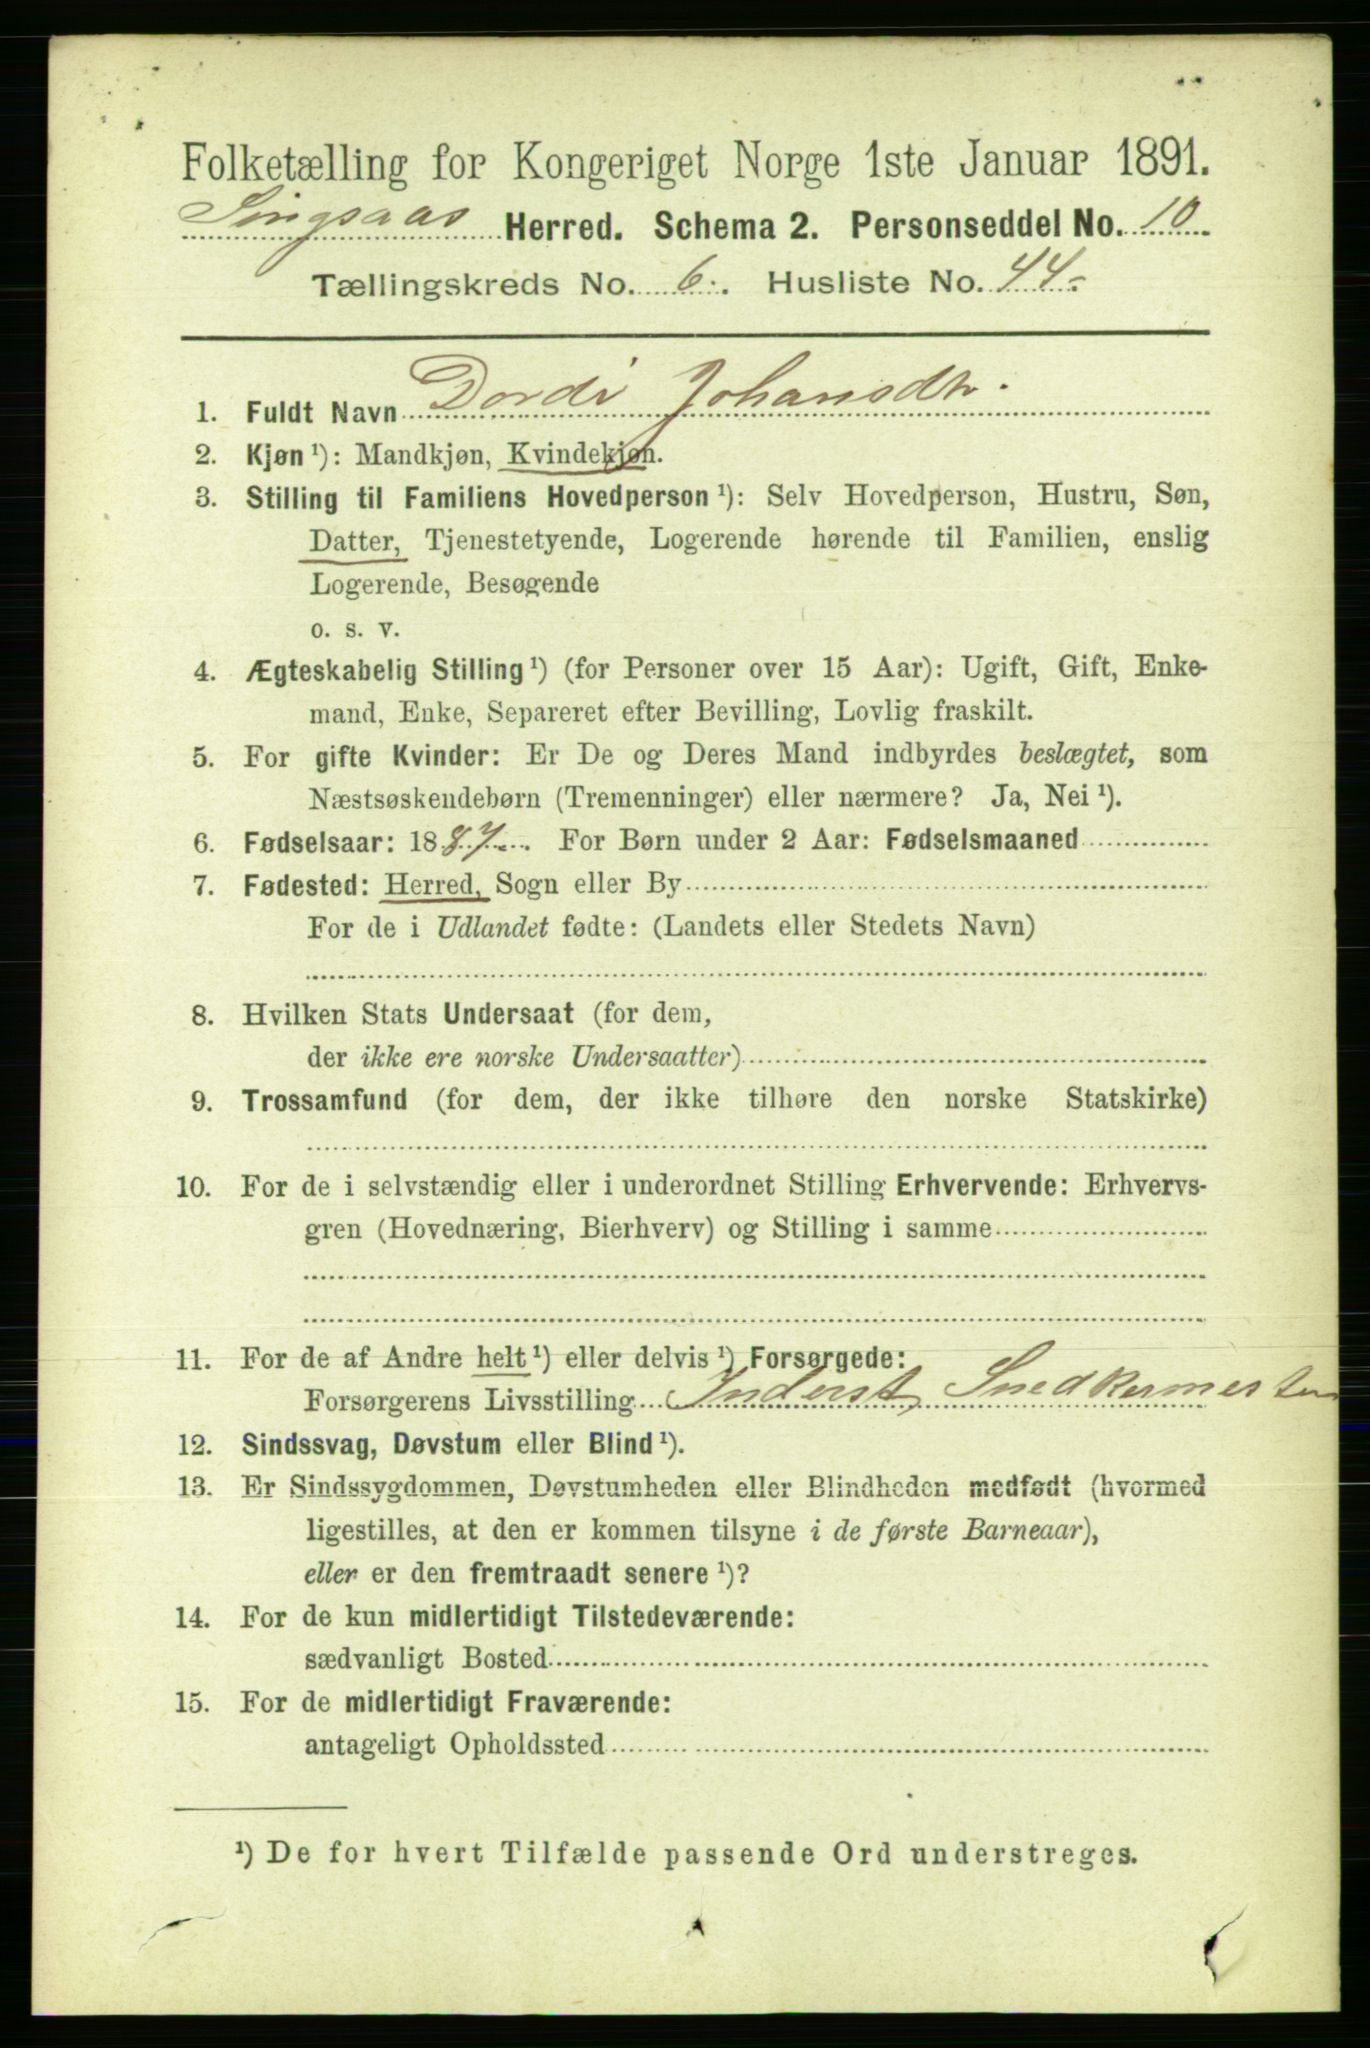 Folketælling for Kongeriget Norge 1ste Januar 1891.
Singsaas Herred. Schema 2. Personseddel No. 10
Tællingskreds No. 6. Husliste No. 44-
1. Fuldt Navn Dordi Johansdtr.
2. Kjøn ¹): Mandkjøn, Kvindekjøn.
3. Stilling til Familiens Hovedperson ¹): Selv Hovedperson, Hustru, Søn,
Datter, Tjenestetyende, Logerende hørende til Familien, enslig
Logerende, Besøgende
o. s. v.
4. Ægteskabelig Stilling ¹) (for Personer over 15 Aar): Ugift, Gift, Enke-
mand, Enke, Separeret efter Bevilling, Lovlig fraskilt.
5. For gifte Kvinder: Er De og Deres Mand indbyrdes beslægtet, som
Næstsøskendebørn (Tremenninger) eller nærmere? Ja, Nei ¹).
6. Fødselsaar: 1887. For Børn under 2 Aar: Fødselsmaaned
7. Fødested: Herred, Sogn eller By
For de i Udlandet fødte: (Landets eller Stedets Navn)
8. Hvilken Stats Undersaat (for dem,
der ikke ere norske Undersaatter)
9. Trossamfund (for dem, der ikke tilhøre den norske Statskirke)
10. For de i selvstændig eller i underordnet Stilling Erhvervende: Erhvervs-
gren (Hovednæring, Bierhverv) og Stilling i samme
11. For de af Andre helt ¹) eller delvis ¹) Forsørgede:
Forsørgerens Livsstilling Inderst, Snedkermester
12. Sindssvag, Døvstum eller Blind ¹).
13. Er Sindssygdommen, Døvstumheden eller Blindheden medfødt (hvormed
ligestilles, at den er kommen tilsyne i de første Barneaar),
eller er den fremtraadt senere ¹)?
14. For de kun midlertidigt Tilstedeværende:
sædvanligt Bosted
15. For de midlertidigt Fraværende:
antageligt Opholdssted
¹) De for hvert Tilfælde passende Ord understreges.